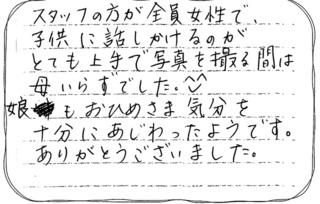 スタッフの方が全員女性で、
子供に話しかけるのが
とても上手で写真を撮る間は
母いらずでした。
娘もおひめさま気分を
十分にあじわったようです。
ありがとうございました。